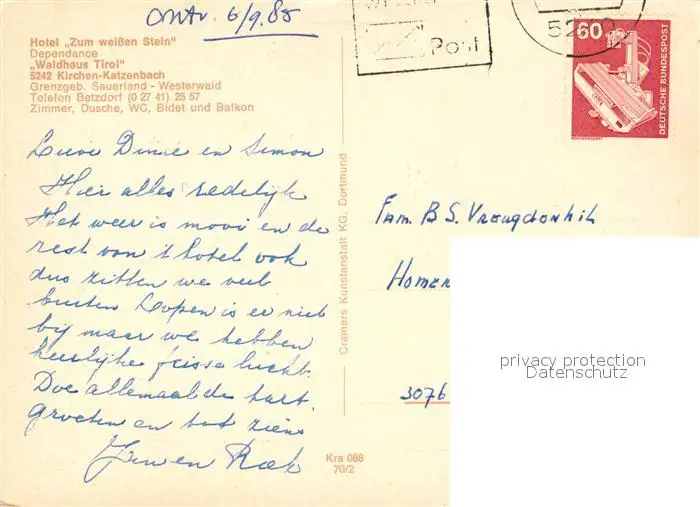 ontv. 6/9.85
Hotel „Zum weißen Stein"
Dependance
„Waldhaus Tirol"
5242 Kirchen-Katzenbach
Grenzgeb. Sauerland - Westerwald
Telefon Betzdorf (0 27 41) 25 57
Zimmer, Dusche, WC, Bidet und Balkon
Lieve Dinie en Simon
Hier alles redelijk
Het weer is mooi en de
rest van 't hotel ook
dus zitten we veel
buiten Lopen is er niet
bij maar we hebben
heerlijke frisse lucht.
Doe allemaal de hart.
groeten en tot ziens
en
Cramers Kunstanstalt KG. Dortmund
Krs 088
70/2
Post
52
60
DEUTSCHE BUNDESPOST
Fam. B S. Vreugdenhil
Homer
3076
privacy protection
Datenschutz